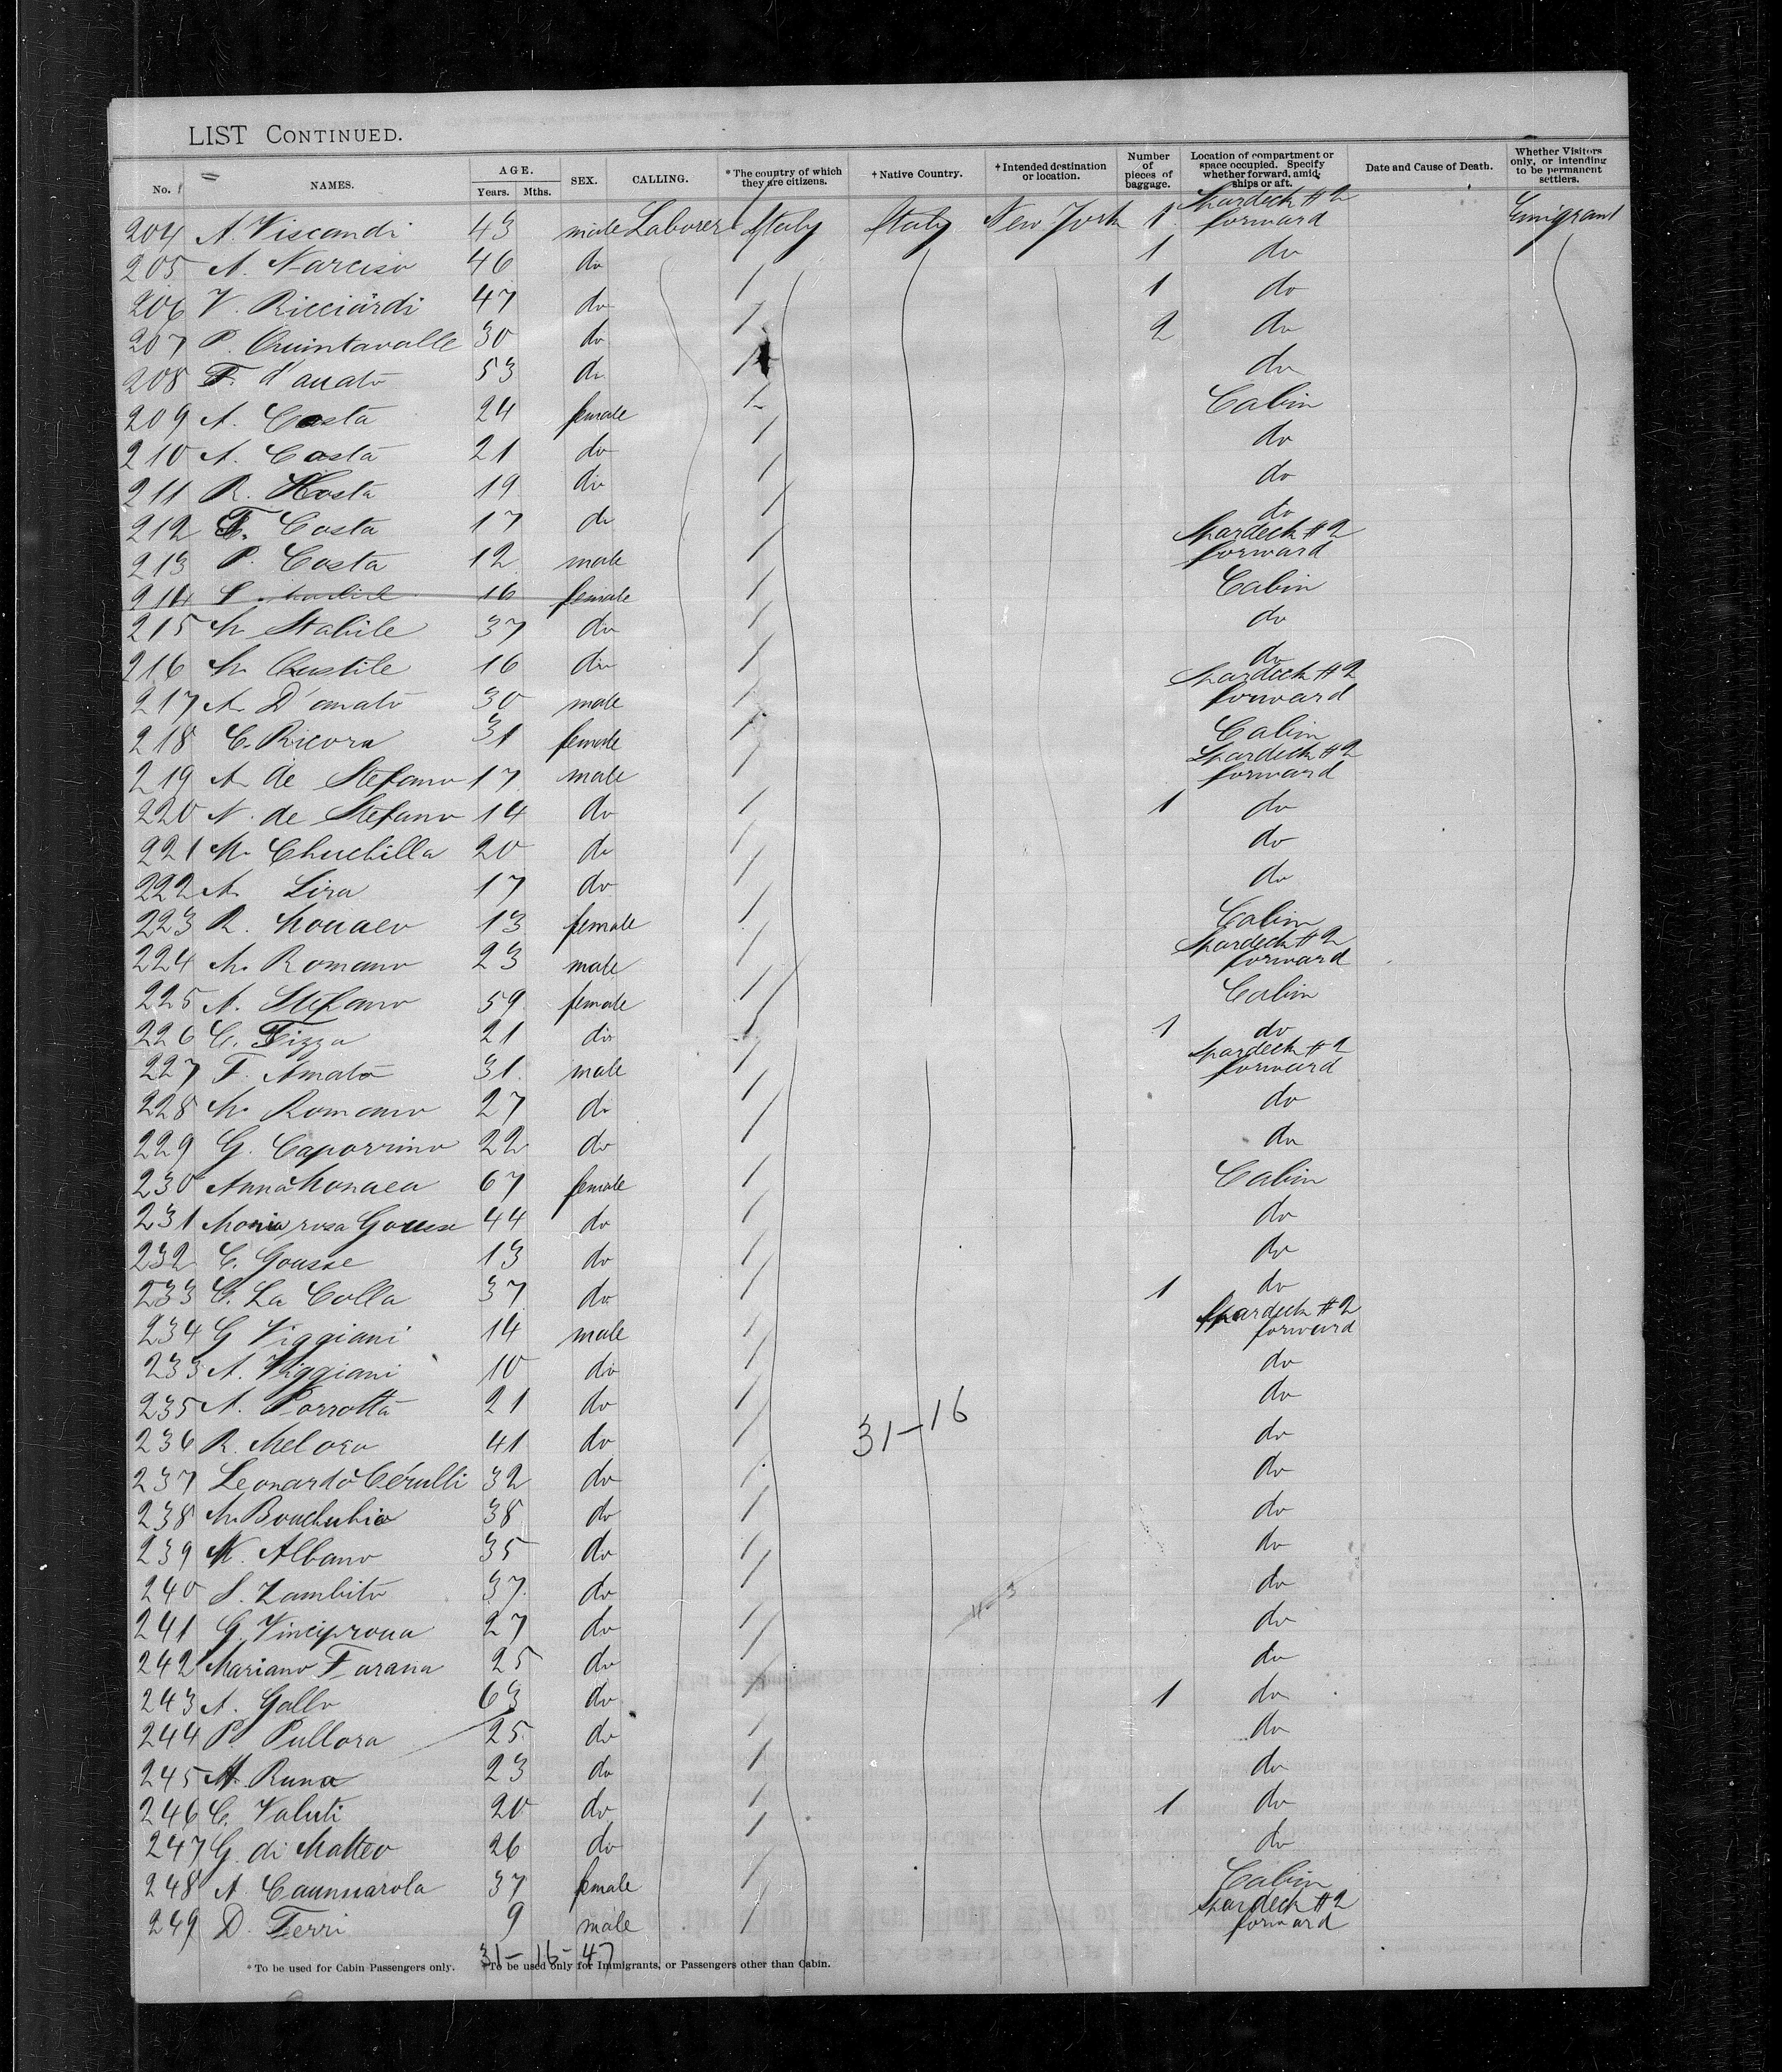 LIST CONTINUED.
No. NAMES. AGE. Years. Mths. SEX. CALLING. * The country of which they are citizens. † Native Country. † Intended destination or location. Number of pieces of baggage. Location of compartment or space occupied. Specify whether forward, amidships or aft. Date and Cause of Death. Whether Visitors only, or intending to be permanent settlers.
204 A. Viscandi 43 male Laborer Italy Italy New York 1 Spardeck #2 forward Emigrant
205 A. Narciso 46 do 1 do
206 V. Ricciardi 47 do 1 do
207 P. Quintavalle 30 do 2 do
208 F. d'auato 53 do do
209 A. Costa 24 female Cabin
210 A. Costa 21 do do
211 R. Costa 19 do do
212 F. Costa 17 do do
213 P. Costa 12 male Spardeck #2 forward
214 S. 16 female Cabin
215 M Stabile 37 do do
216 M. 16 do do
217 A. D'amato 30 male Spardeck #2 forward
218 C. Ricora 31 female Cabin
219 A de Stefano 17 male Spardeck #2 forward
220 N. de Stefano 14 do 1 do
221 M. Chuchilla 20 do do
222 A. Lira 17 do do
223 R. Monaco 13 female Cabin
224 M. Romano 23 male Spardeck #2 forward
225 A. Stefano 59 female Cabin
226 C. Tizza 21 do 1 do
227 F. Amato 31 male Spardeck #2 forward
228 M. Romano 27 do do
229 G. Caporrino 22 do do
230 Anna Monaco 67 female Cabin
231 Maria rosa Gousse 44 do do
232 C. Gousse 13 do do
233 C. La Colla 37 do 1 do
234 G Viggiani 14 male Spardeck #2 forward
233 A. Viggiani 10 do do
235 A. Porrotta 21 do do
31-16
236 R. Meloro 41 do do
237 Leonardo Cerulli 32 do do
238 M. 38 do do
239 M. Albano 35 do do
240 S. Zambito 37 do do
241 G. Vinciprova 27 do do
242 Mariano Farana 25 do do
243 A. Gallo 63 do 1 do
244 P. Pullora 25 do do
245 M. Runa 23 do do
246 C. Valuti 20 do 1 do
247 G. di Matteo 26 do do
248 A. Cannuarola 37 female Cabin
249 D. Ferri 9 male Spardeck #2 forward
31-16-47
* To be used for Cabin Passengers only. † To be used only for Immigrants, or Passengers other than Cabin.